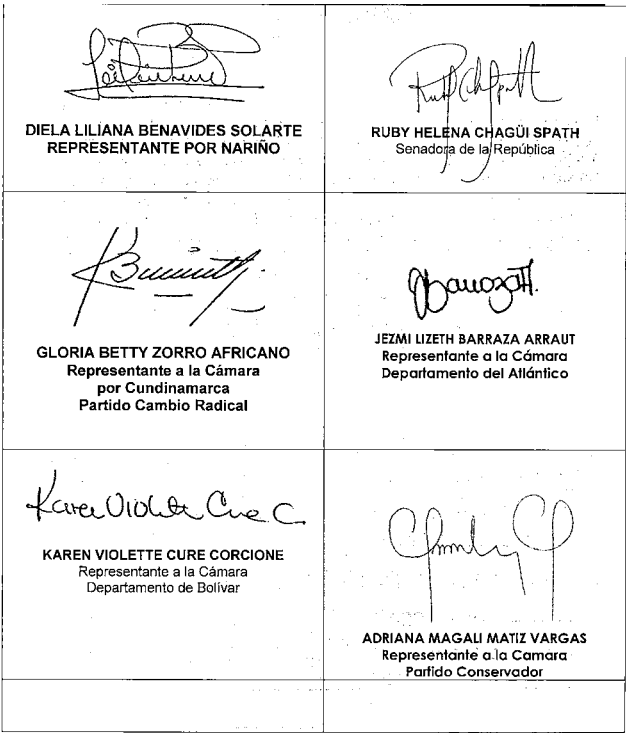 DIELA LILIANA BENAVIDES SOLARTE
REPRESENTANTE POR NARIÑO
Ruby Chagüi Spath
RUBY HELENA CHAGÜI SPATH
Senadora de la República
GLORIA BETTY ZORRO AFRICANO
Representante a la Cámara
por Cundinamarca
Partido Cambio Radical
JEZMI LIZETH BARRAZA ARRAUT
Representante a la Cámara
Departamento del Atlántico
Karen Violette Cure C.
KAREN VIOLETTE CURE CORCIONE
Representante a la Cámara
Departamento de Bolívar
ADRIANA MAGALI MATIZ VARGAS
Representante a la Camara
Partido Conservador